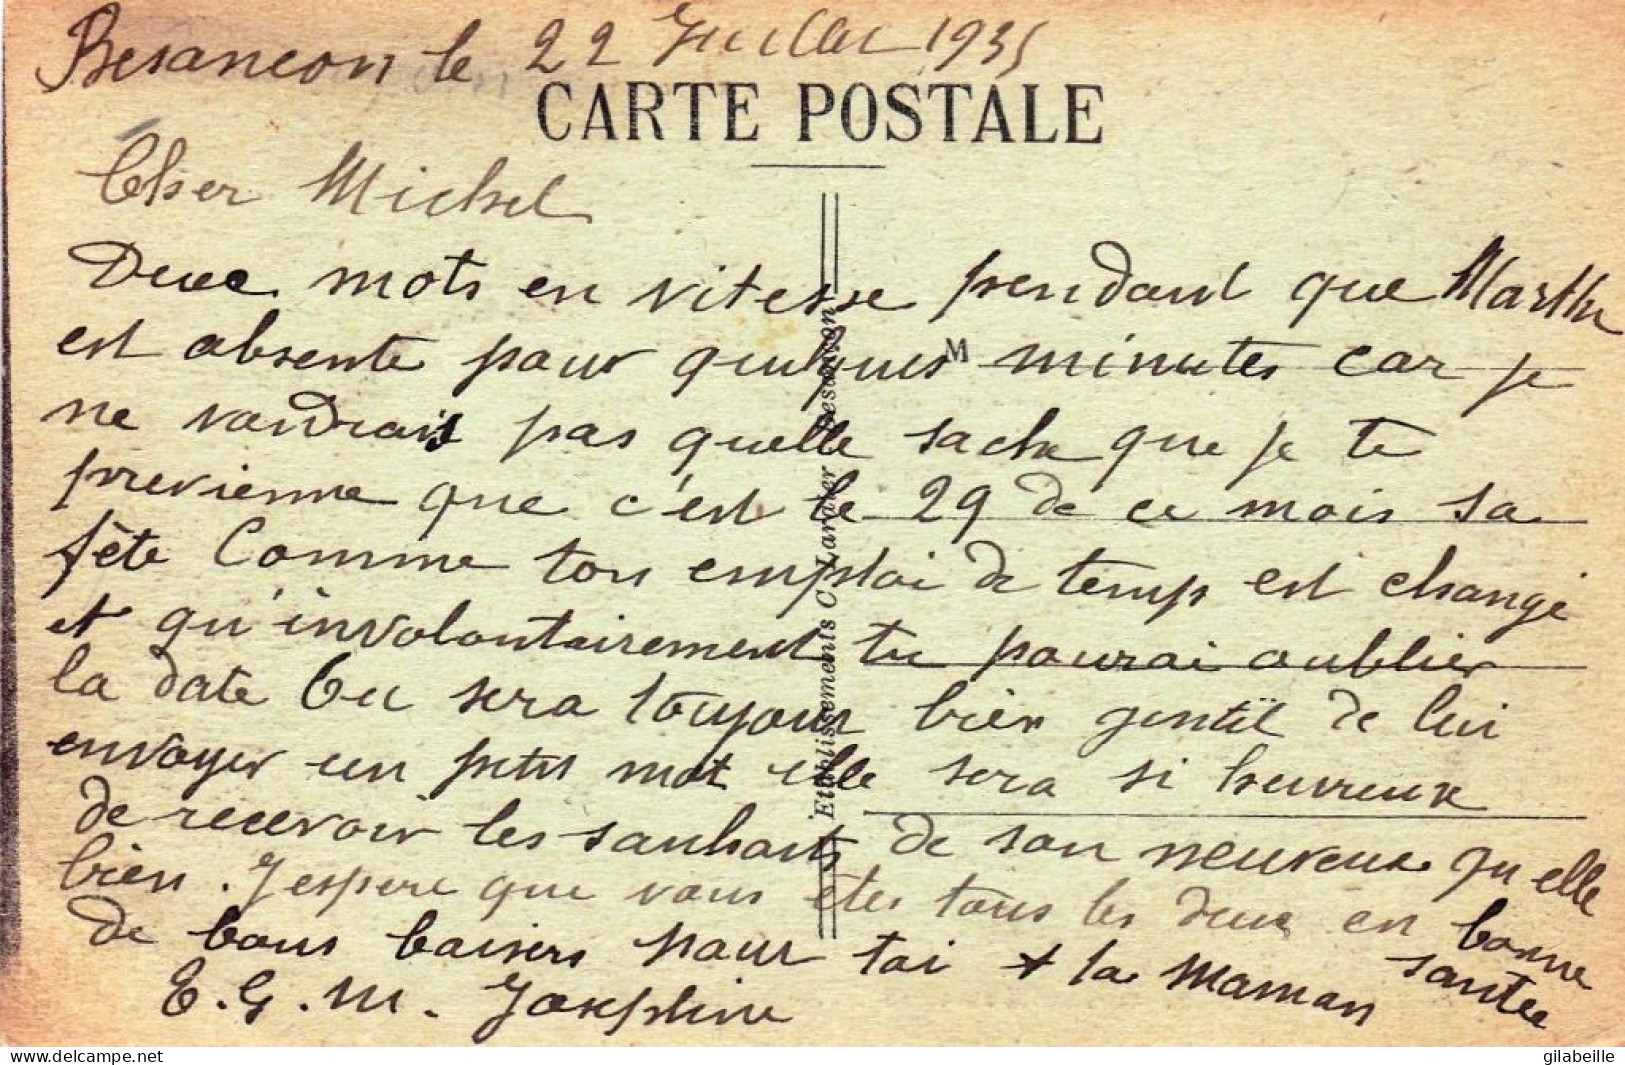 Besancon le 22 Juillet 1935
CARTE POSTALE
Cher Michel
Deux mots en vitesse pendant que Marthe
est absente pour quelques minutes car je
M
ne voudrais pas quelle sache que je te
previenne que c'est le 29 de ce mois sa
fête Comme ton emploi de temps est changé
et qu'involontairement tu pourai oublier
la date Tu sera toujour bien gentil de lui
envoyer un petit mot elle sera si heureux
de recevoir les souhaits de son neuveux qu elle
bien. J espere que vous êtes tous les deux en bonne
santee
de bons baisers pour toi + ta Maman
E. G. M. Josephine
Etablissements C. Lardier Besançon
gilabeille